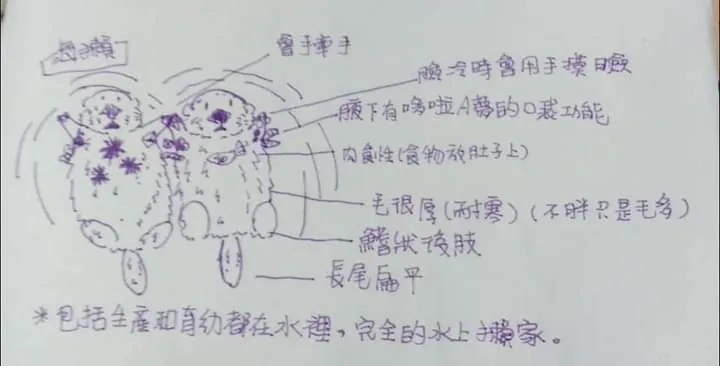 海獺
會手牽手
臉冷時會用手摸臉
腋下有哆啦A夢的口袋功能
肉食性(食物放肚子上)
毛很厚(耐寒)(不胖只是毛多)
鰭狀後肢
長尾扁平
*包括生產和育幼都在水裡，完全的水上獺家。